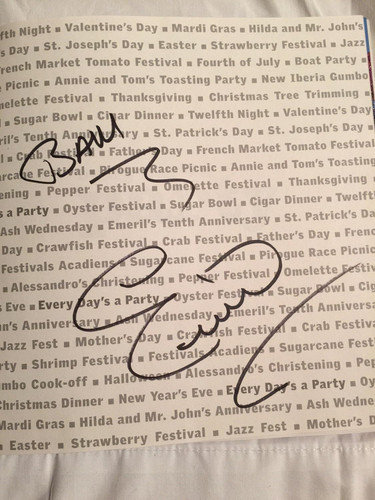 fth Night ■ Valentine's Day ■ Mardi Gras ■ Hilda and Mr. John's
's Day ■ St. Joseph's Day ■ Easter ■ Strawberry Festival ■ Jazz
French Market Tomato Festival ■ Fourth of July ■ Boat Party ■
e Picnic ■ Annie and Tom's Toasting Party ■ New Iberia Gumbo
melette Festival ■ Thanksgiving ■ Christmas Tree Trimming ■
l ■ Sugar Bowl ■ Cigar Dinner ■ Twelfth Night ■ Valentine's Day
eril's Tenth Anniversary ■ St. Patrick's Day ■ St. Joseph's Day
l ■ Crab Festival ■ Father's Day ■ French Market Tomato Festival
BAM
arcane Festival ■ Pirogue Race Picnic ■ Annie and Tom's Toasting
ening ■ Pepper Festival ■ Omelette Festival ■ Thanksgiving
y's a Party ■ Oyster Festival ■ Sugar Bowl ■ Cigar Dinner ■ Twelft
Ash Wednesday ■ Emeril's Tenth Anniversary ■ St. Patrick's D
Day ■ Crawfish Festival ■ Crab Festival ■ Father's Day ■ Frenc
Festivals Acadiens ■ Sugarcane Festival ■ Pirogue Race Picnic
■ Alessandro's Christening ■ Pepper Festival ■ Omelette Festi
s Eve ■ Every Day's a Party ■ Oyster Festival ■ Sugar Bowl ■ Cig
n's Anniversary ■ Ash Wednesday ■ Emeril's Tenth Anniversa
Jazz Fest ■ Mother's Day ■ Crawfish Festival ■ Crab Festiva
rty ■ Shrimp Festival ■ Festivals Acadiens ■ Sugarcane Festi
umbo Cook-off ■ Halloween ■ Alessandro's Christening ■ Pep
hristmas Dinner ■ New Year's Eve ■ Every Day's a Party ■ Oy
Mardi Gras ■ Hilda and Mr. John's Anniversary ■ Ash Wedne
■ Easter ■ Strawberry Festival ■ Jazz Fest ■ Mother's D